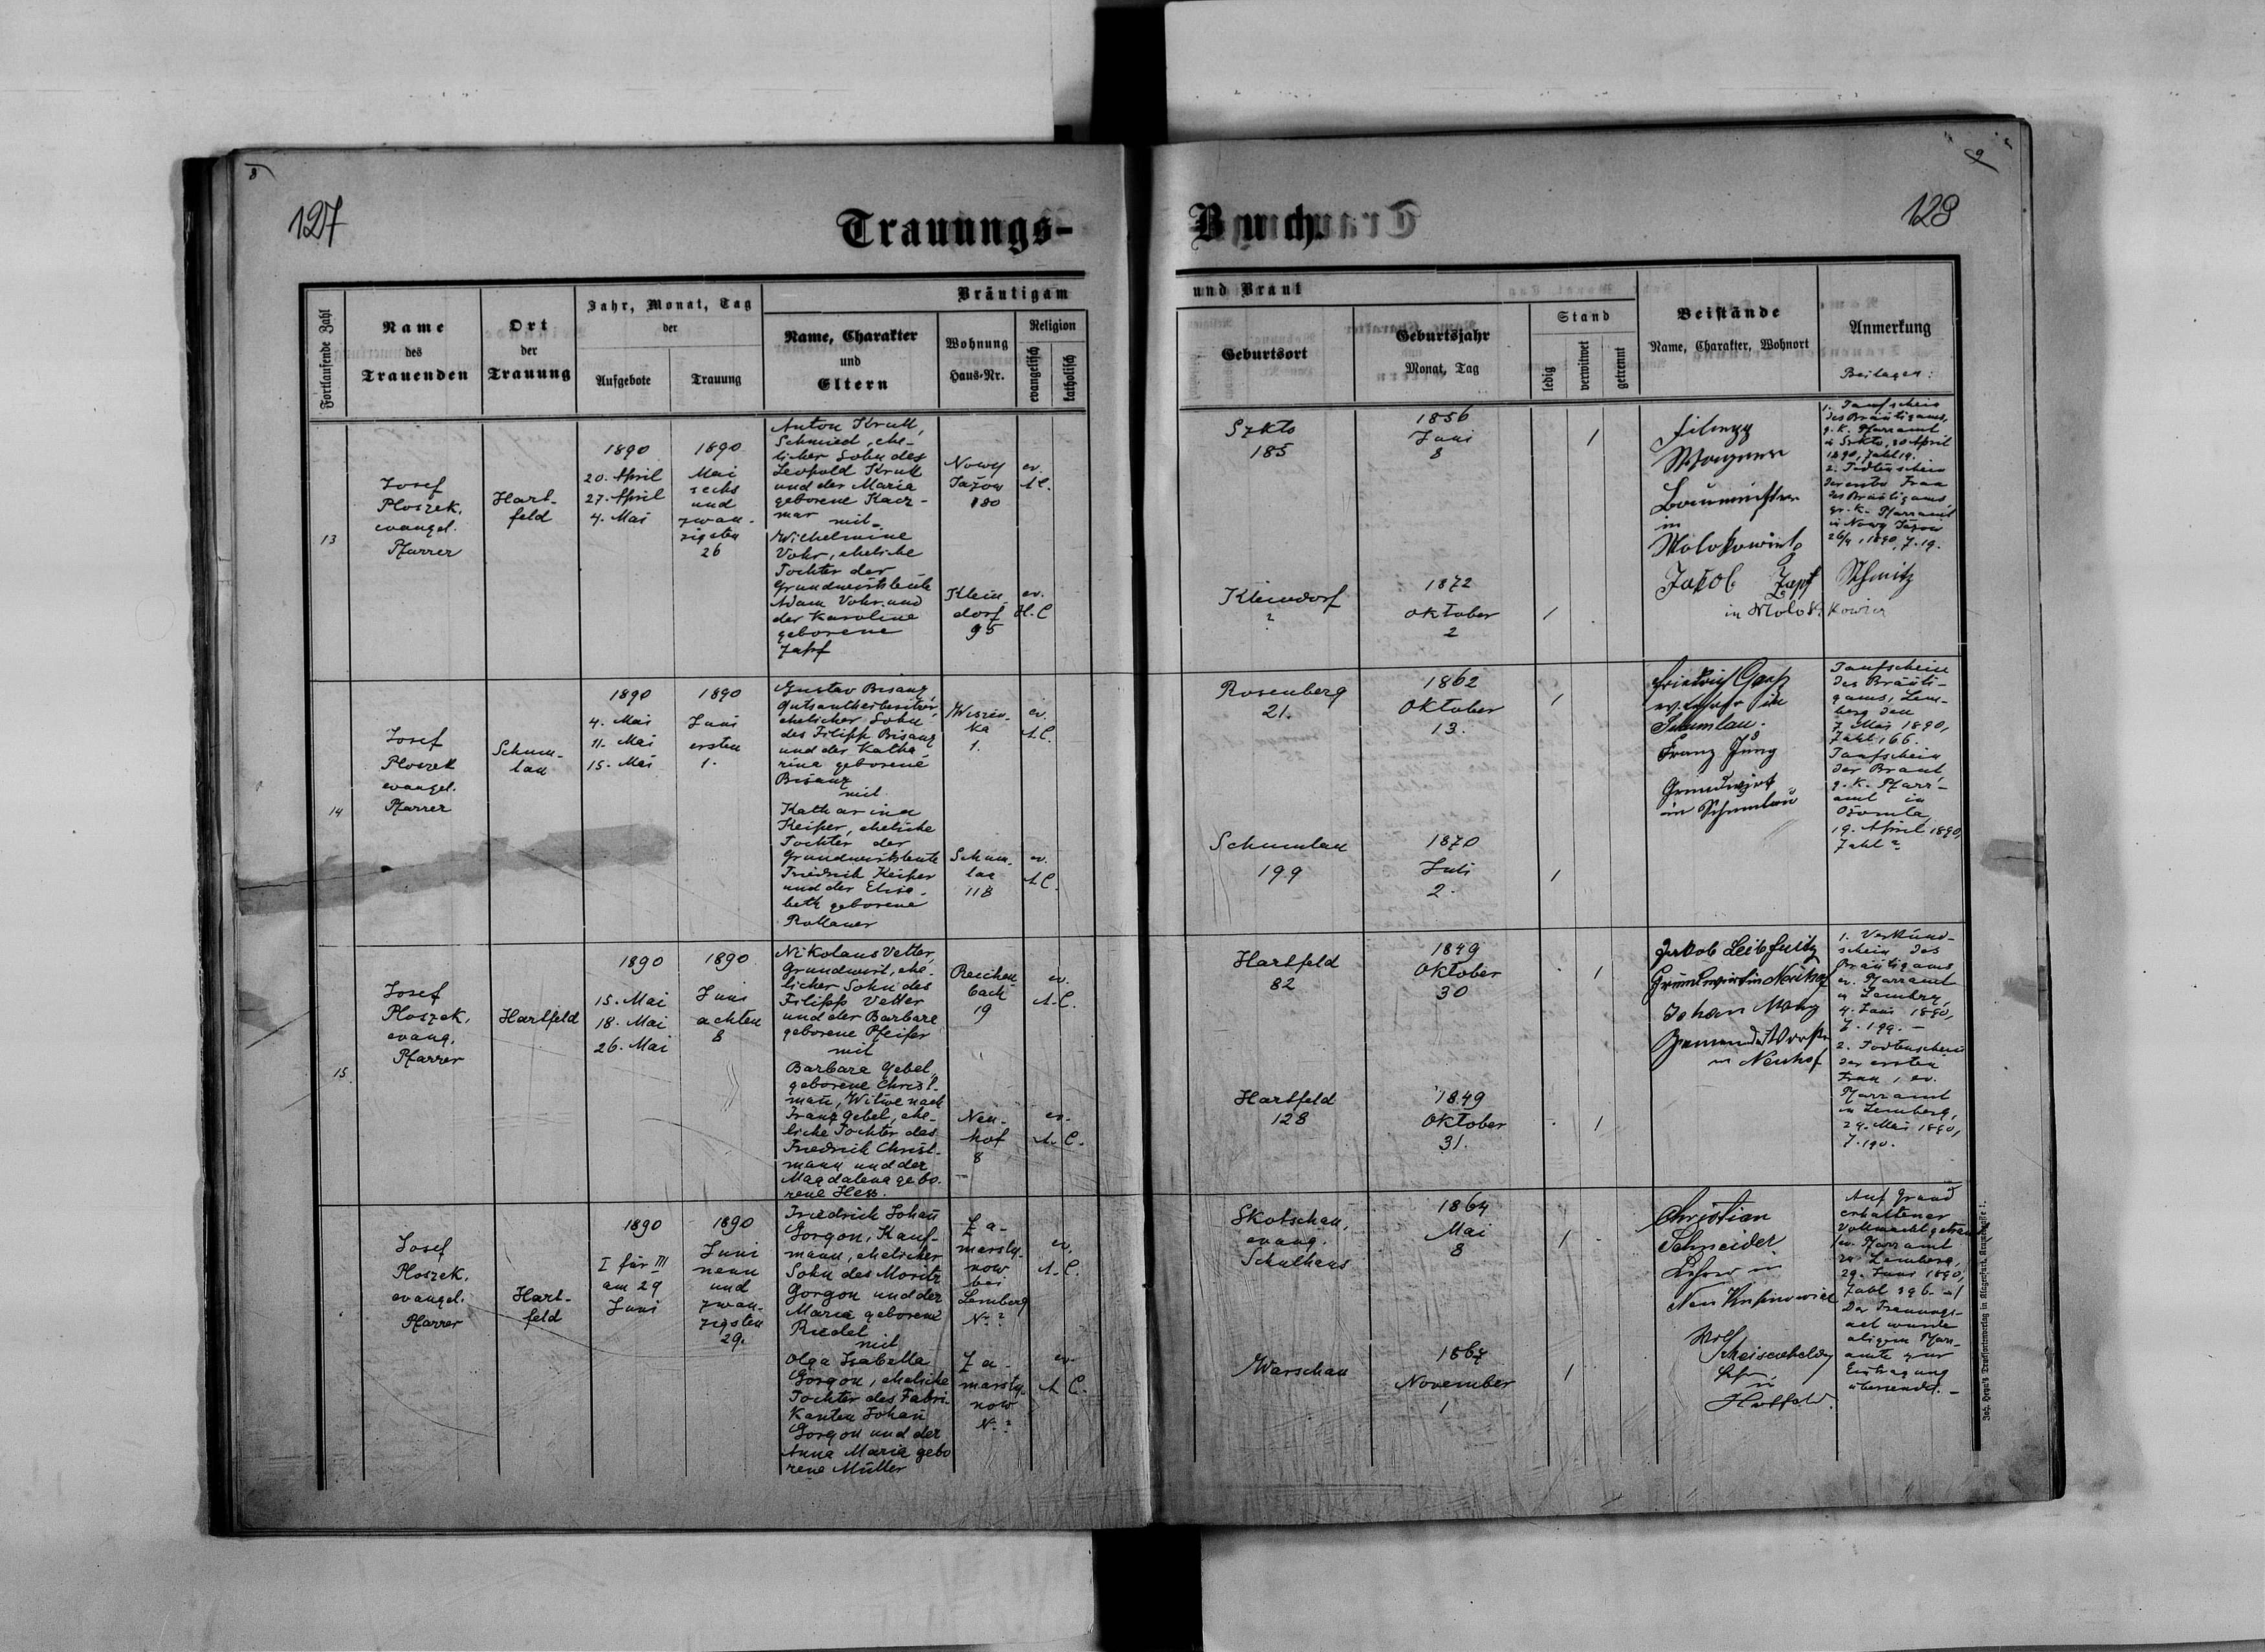 8
127
Trauungs-
Fortlaufende Zahl
Name
des
Trauenden
Ort
der
Trauung
Jahr, Monat, Tag
der
Aufgebote
Trauung
Bräutigam
Name, Charakter
und
Eltern
Wohnung
Haus-Nr.
Religion
evangelisch
katholisch
13
Josef
Ploszek,
evangel.
Pfarrer
Hart-
feld
1890
20. April
27. April
4. Mai
1890
Mai
sechs
und
zwan-
zigsten
26
Anton Krull,
Schmied, ehe-
licher Sohn des
Leopold Krull
und der Maria
geborene Kacz-
mar mit
Wilhelmine
Vohr, eheliche
Tochter der
Grundwirtsleute
Adam Vohr und
der Karoline
geborene
Zapf
Nowy
Jażow
180
ev.
A.C.
Klein
dorf
95
ev.
H.C
14
Josef
Ploszek
evangel.
Pfarrer
Schum-
lau
1890
4. Mai
11. Mai
15. Mai
1890
Juni
ersten
1.
Gustav Bisanz,
ehelicher Sohn
des Filipp Bisanz
und der Katha-
rina geborene
Bisanz
mit
Katharina
Keiper, eheliche
Tochter der
Grundwirtsleute
Friedrich Keiper
und der Elisa-
beth geborene
Rollauer
Wiszin-
ka
1.
ev.
A.C.
Schum-
lau
118
ev.
A.C.
15
Josef
Ploszek,
evang.
Pfarrer
Hartfeld
1890
15. Mai
18. Mai
26. Mai
1890
Juni
achten
8
Nikolaus Vetter,
Grundwirt, ehe-
licher Sohn des
Filipp Vetter
und der Barbara
geborene Pfeifer
mit
Barbara Gebel,
geborene Christ-
man, Witwe nach
Franz Gebel, ehe-
liche Tochter des
Friedrich Christ-
mann und der
Magdalena gebo-
rene Hess.
Reichen-
bach
19
ev.
A.C.
Neu-
hof
8
ev.
A.C.
Josef
Ploszek,
evangel.
Pfarrer
Hart-
feld
1890
I für III
am 29
Juni
1890
Juni
neun
und
zwan-
zigsten
29.
Friedrich Johan
Gorgon, Kauf-
mann, ehelicher
Sohn des Moritz
Gorgon und der
Maria geborene
Riedel
mit
Olga Isabella
Gorgon, eheliche
Tochter des Fabri-
kanten Johan
Gorgon und der
Anna Maria gebo
rene Müller
Za-
marsty-
now
bei
Lemberg
N. ?
ev.
A.C.
Za-
marsty-
now
N. ?
ev.
A.C.
9
128
Buch.
und Braut
Geburtsort
Geburtsjahr
Monat, Tag
Stand
ledig
verwitwet
getrennt
Beistände
Name, Charakter, Wohnort
Anmerkung
Beilagen:
Szkto
185
1856
Juni
8
1
Filipp
Wagner
Baumeister
in
1. Taufschein
des Bräutigams,
g. k. Pfarramt
in Szkto, 20 April
1890, Zahl 19.
2. Todtenschein
der ersten Frau
des Bräutigams
gr. k. Pfarramt
in Nowy Jażow
26/4, 1890, Z. 19.
Kleindorf
?
1872
Oktober
2
1
Jakob Zapf
Rosenberg
21.
1862
Oktober
13.
1
in
Schumlau.
Franz Jung
Grundwirt
in Schumlau
Taufschein
des Bräuti-
gams, Lem-
berg den
7. Mai 1890,
Zahl 166.
Taufschein
der Braut,
g. k. Pfarr-
amt in
Ożomla,
19. April 1890,
Zahl ?
Schumlau
199
1870
Juli
2.
1
Hartfeld
82
1849
Oktober
30
1
Jakob Leibfritz
Grundwirt in Neuhof
Johan Mang
in Neuhof
1. Verkünd-
schein des
Bräutigams
ev. Pfarramt
in Lemberg,
4. Juni 1890,
Z. 199.
2. Todtenschein
der ersten
Frau, ev.
Pfarramt
in Lemberg,
24. Mai 1890,
Z. 190.
Hartfeld
128
1849
Oktober
31.
1
Skotschau,
evang.
Schulhaus
1864
Mai
8
1
Christian
Schneider
Lehrer in
Auf Grund
erhaltener
Vollmacht getraut
ev. Pfarramt
zu Lemberg,
29. Juni 1890,
Zahl 396.
Der Trauungs-
act wurde
amte zur
Eintragung
übersendet. –
Warschau
1867
November
1
1
Joh. Heyn's Drucksortenverlag in Klagenfurt.